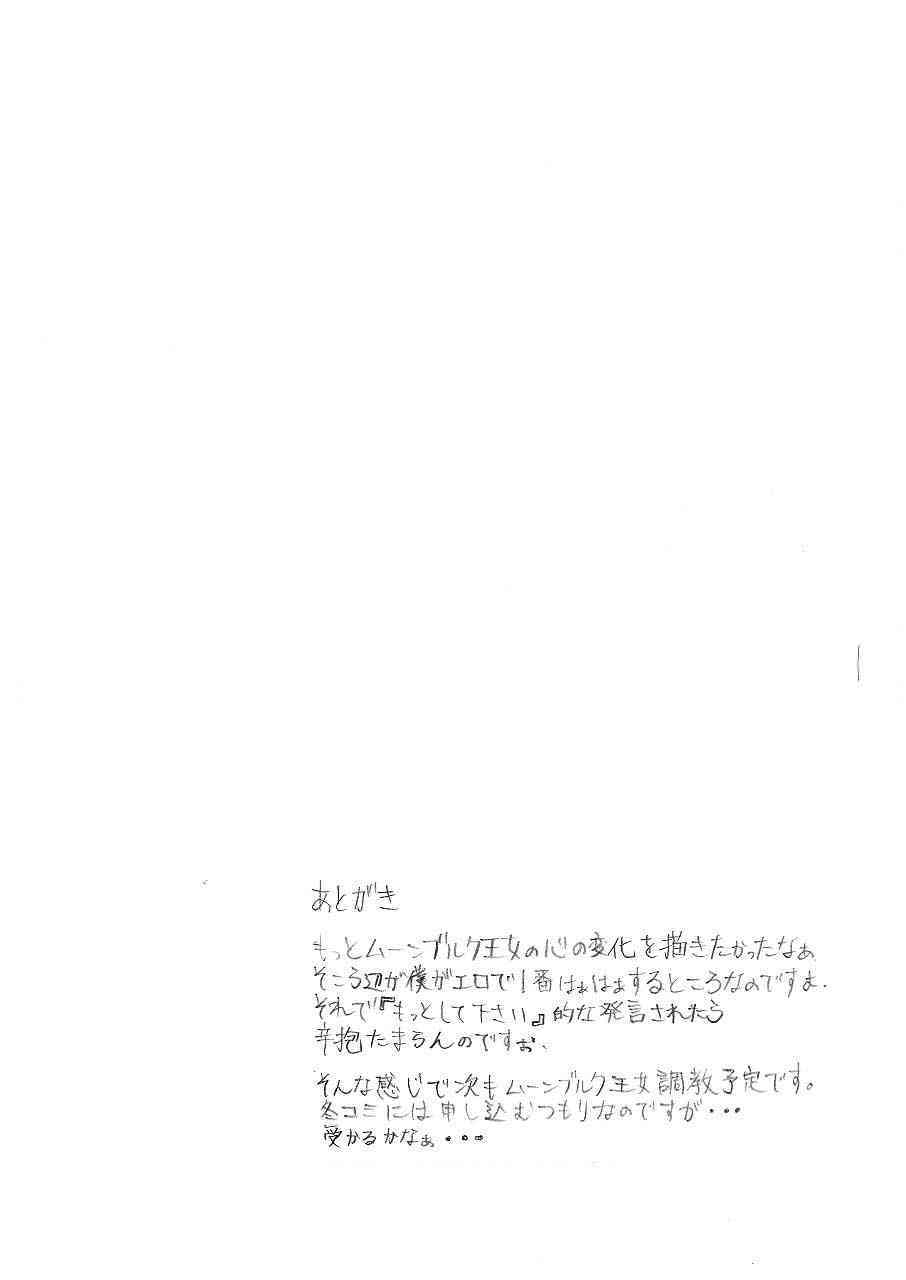 あとがき
もっとムーンブルク王女の心の変化を描きたかったなぁ
そころ辺が僕がエロで1番はぁはぁするところなのですよ.
それで『もっとして下さい』的な発言されたら
辛抱たまらんのですぉ、
そんな感じで次もムーンブルク王女調教予定です。
冬コミには申し込むつもりなのですが・・・
受かるかなぁ・・・